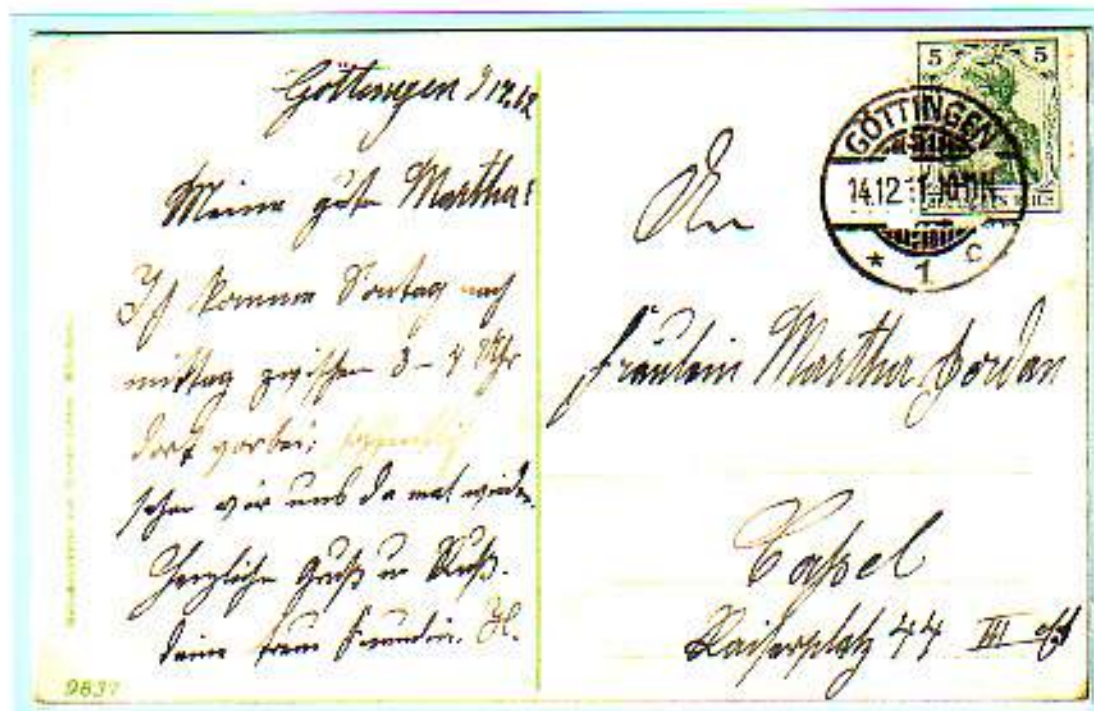 Göttingen d 14.12.
Meine gute Martha!
Ich komme Sontag nach
mittag zwischen 3-4 Uhr
dort vorbei; hoffentlich
sehen wir uns da mal wieder.
Herzliche Gruß u Kuß.
Deine treue Freundin. H.
9837
5 5
GÖTTINGEN
14.12.11
* 1 c
An
Fräulein Martha Jordan
Caßel
Kaiserplatz 44 III